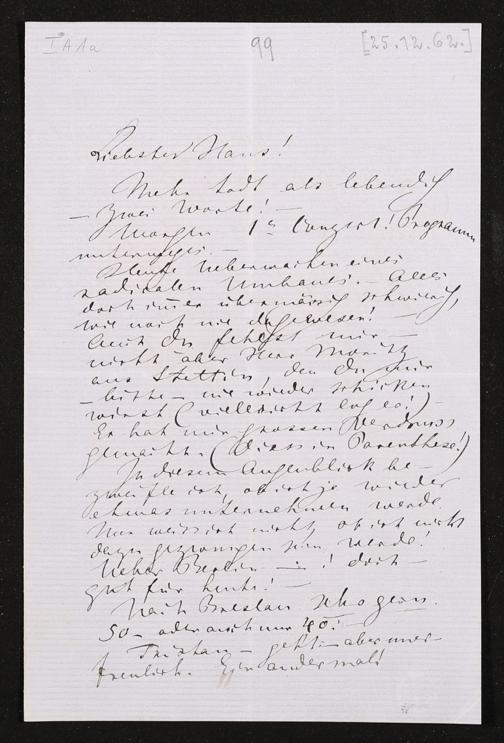 I A 1a 99 [25.12.62.]
Liebster Hans!
Mehr todt als lebendig
– zwei Worte! –
Morgen 1s Conzert! Programm
unterwegs. –
Heute Ueberwachen eines
radicalen Umbaues. – Alles
doch immer übermässig schwierig,
wie noch nie dagewesen! –
Auch Du fehlst mir –
nicht aber Herr Moritz
aus Stettin, den Du mir
– bitte – nie wieder schicken
wirst (vielleicht log er!) –
Er hat mir grossen Verdruss
gemacht. (Diess in Parenthese!)
In diesem Augenblick be-
zweifle ich, ob ich je wieder
etwas unternehmen werde.
Nur weiss ich nicht, ob ich nicht
dazu gezwungen sein werde!
Ueber Berlin – : ! doch –
gut für heute! –
Nach Breslau
50 – oder auch nur 40! –
Tristan – geht – aber uner-
freulich. Ein andermal!